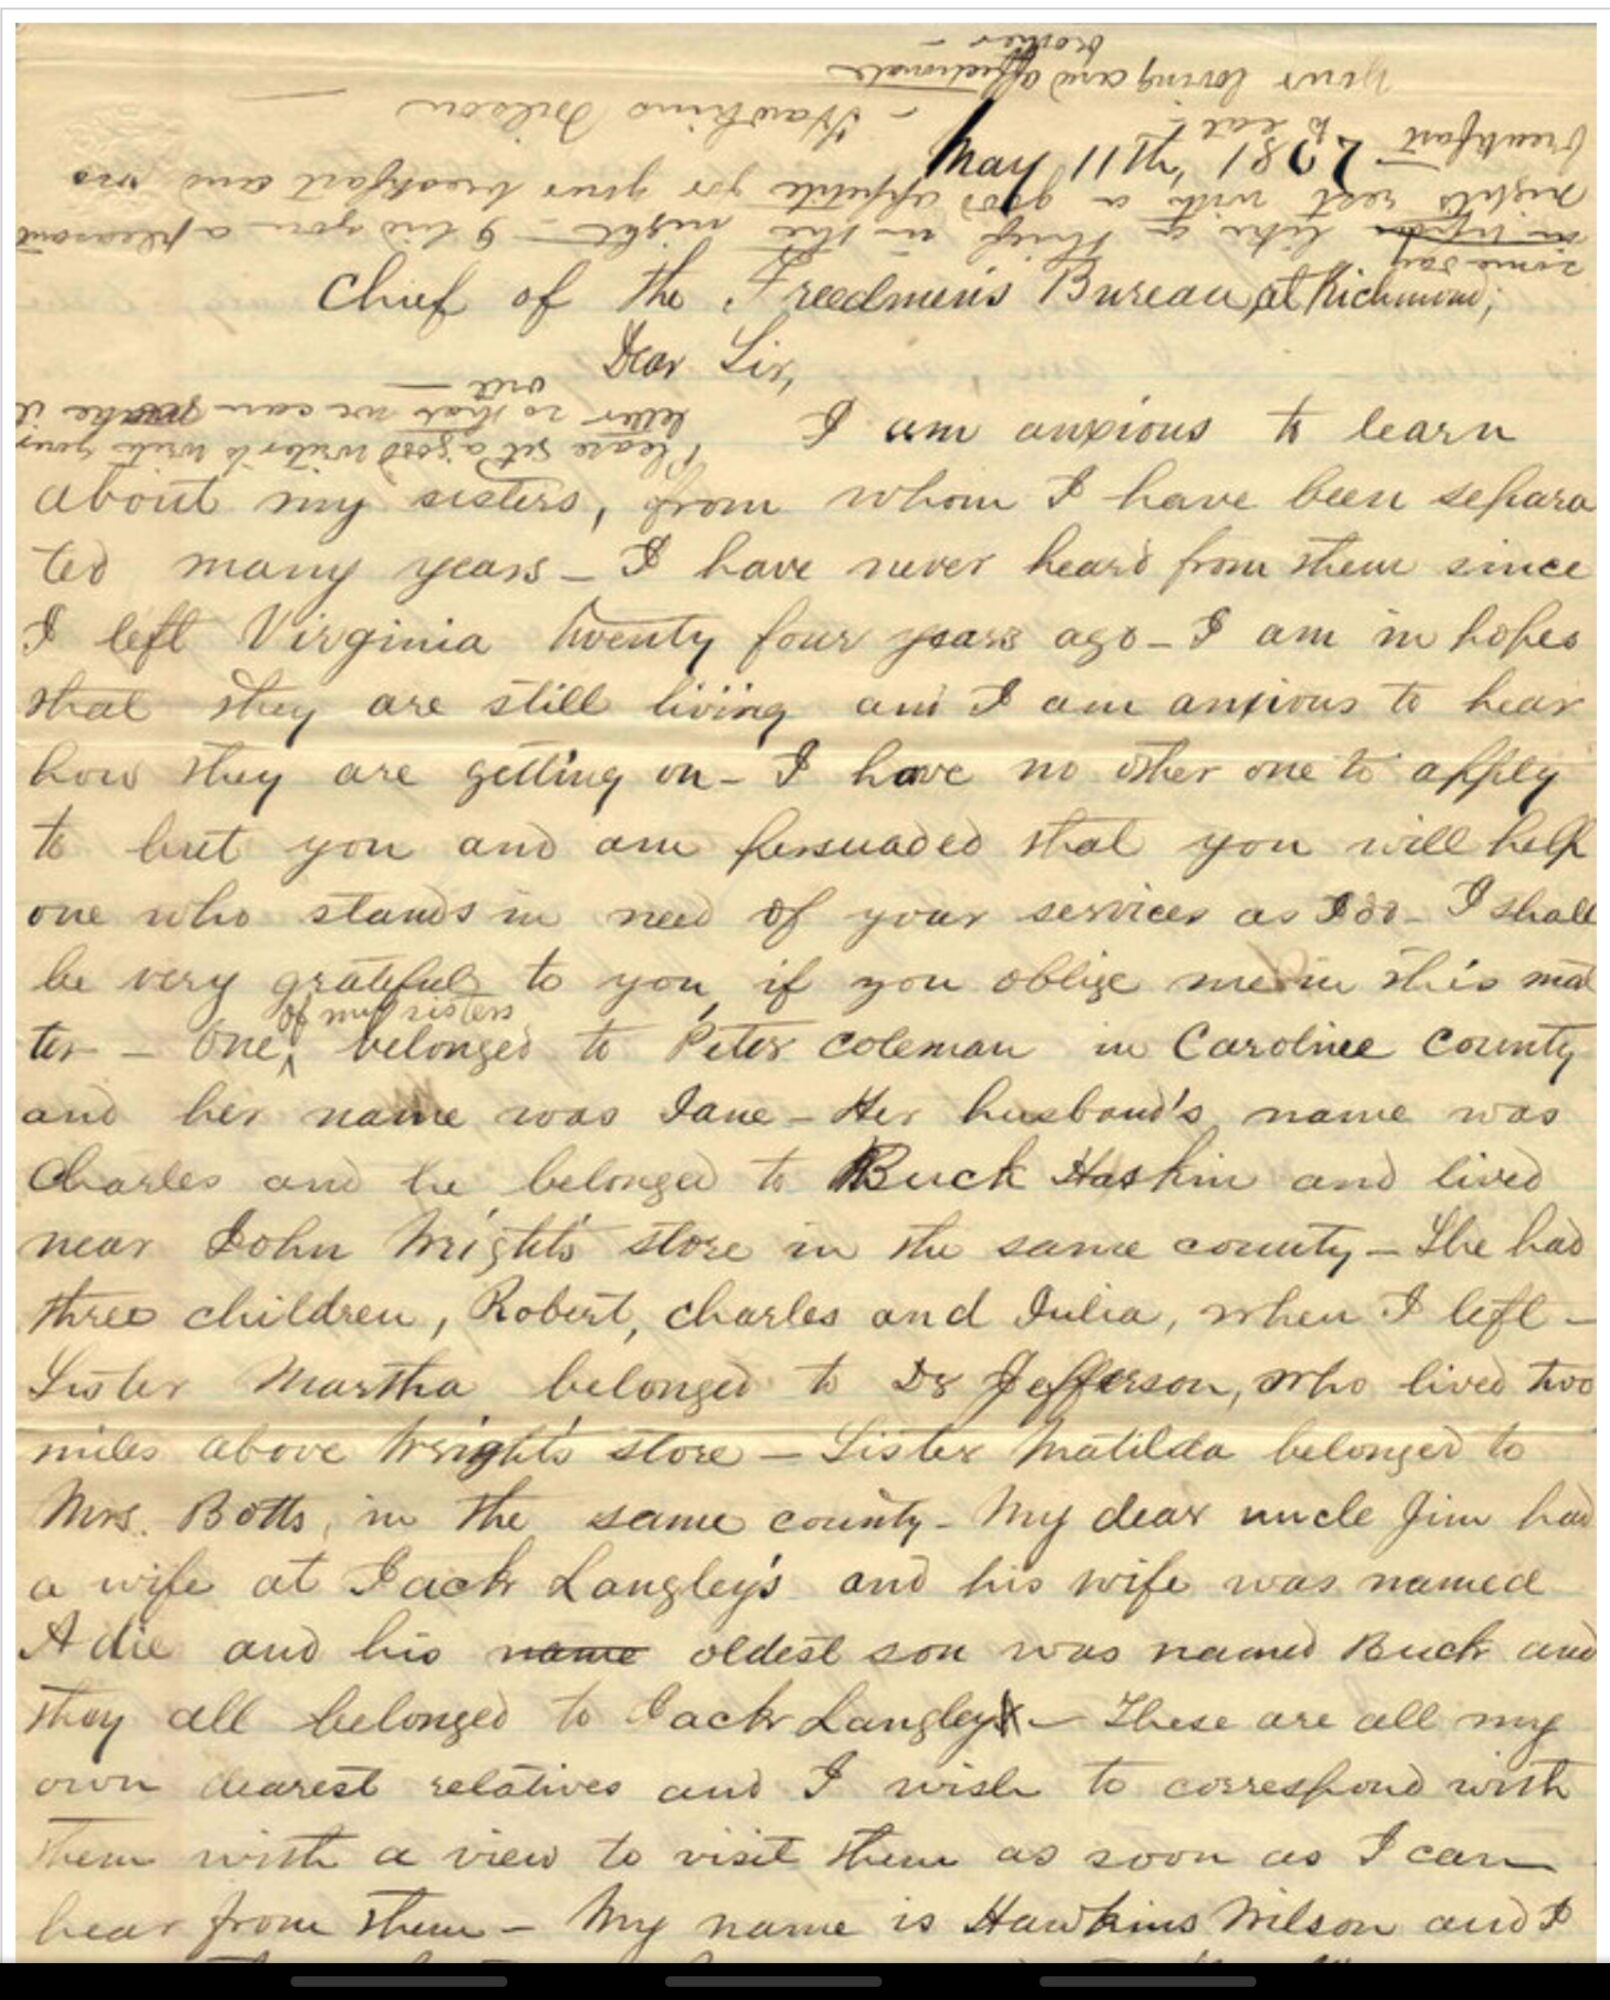 May 11th, 1867
Chief of the Freedmen's Bureau, at Richmond,
Dear Sir,
I am anxious to learn
about my sisters, from whom I have been separa
ted many years _ I have never heard from them since
I left Virginia twenty four years ago _ I am in hopes
that they are still living and I am anxious to hear
how they are getting on _ I have no other one to apply
to but you and am persuaded that you will help
one who stands in need of your services as I do _ I shall
be very grateful to you, if you oblige me in this mat
of my sisters
ter _ One belonged to Peter Coleman in Caroline County
and her name was Jane _ Her husband's name was
Charles and he belonged to Buck Haskin and lived
near John Wright's store in the same county _ She had
three children, Robert, Charles and Julia, when I left _
Sister Martha belonged to Dr Jefferson, who lived two
miles above Wright's store _ Sister Matilda belonged to
Mrs. Botts, in the same county _ My dear uncle Jim had
a wife at Jack Langley's and his wife was named
Adie and his name oldest son was named Buck and
they all belonged to Jack Langley _ These are all my
own dearest relatives and I wish to correspond with
them with a view to visit them as soon as I can
hear from them _ My name is Hawkins Wilson and I
Please get a good writer to write your
letter so that we can make it
out _
some day
in like a thief in the night _ I bid you a pleasant
night's rest with a good appetite for your breakfast and no
breakfast to eat _
_ Hawkins Wilson _
Your loving and affectionate
brother _